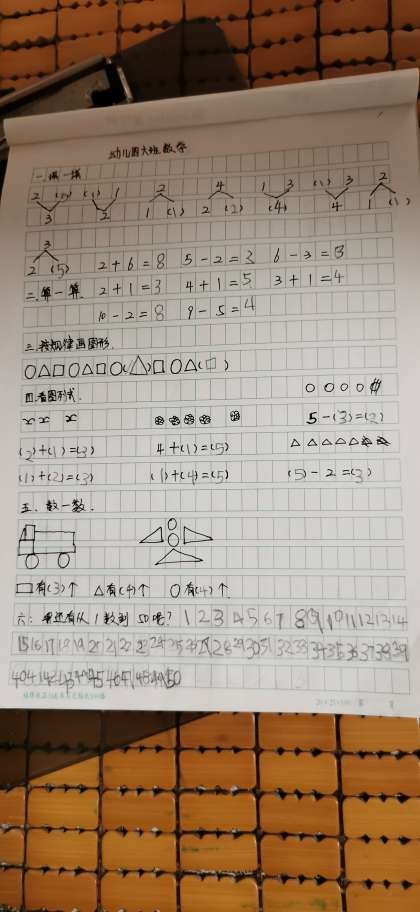 幼儿园大班数学
一.填一填
2 ( ) ( ) 1 2 4 1 3 (1) 3 2
3 2 1 (1) 2 (2) (4) 4 1 (1)
3
2 (5) 2+6=8 5-2=3 6-3=3
二.算一算. 2+1=3 4+1=5 3+1=4
10-2=8 9-5=4
三.按规律画图形.
○△□○△□○(△)□○△(□)
四.看图列式.
(2)+(1)=(3) 4+(1)=(5) 5-(3)=(2)
(1)+(2)=(3) (1)+(4)=(5) (5)-2=(3)
五.数一数.
□有(3)个 △有(4)个 ○有(4)个.
六: 从1数到50吧? 1 2 3 4 5 6 7 8 9 10 11 12 13 14
15 16 17 18 19 20 21 22 23 24 25 26 27 28 29 30 31 32 33 34 35 36 37 38 39
40 41 42 43 44 45 46 47 48 49 50